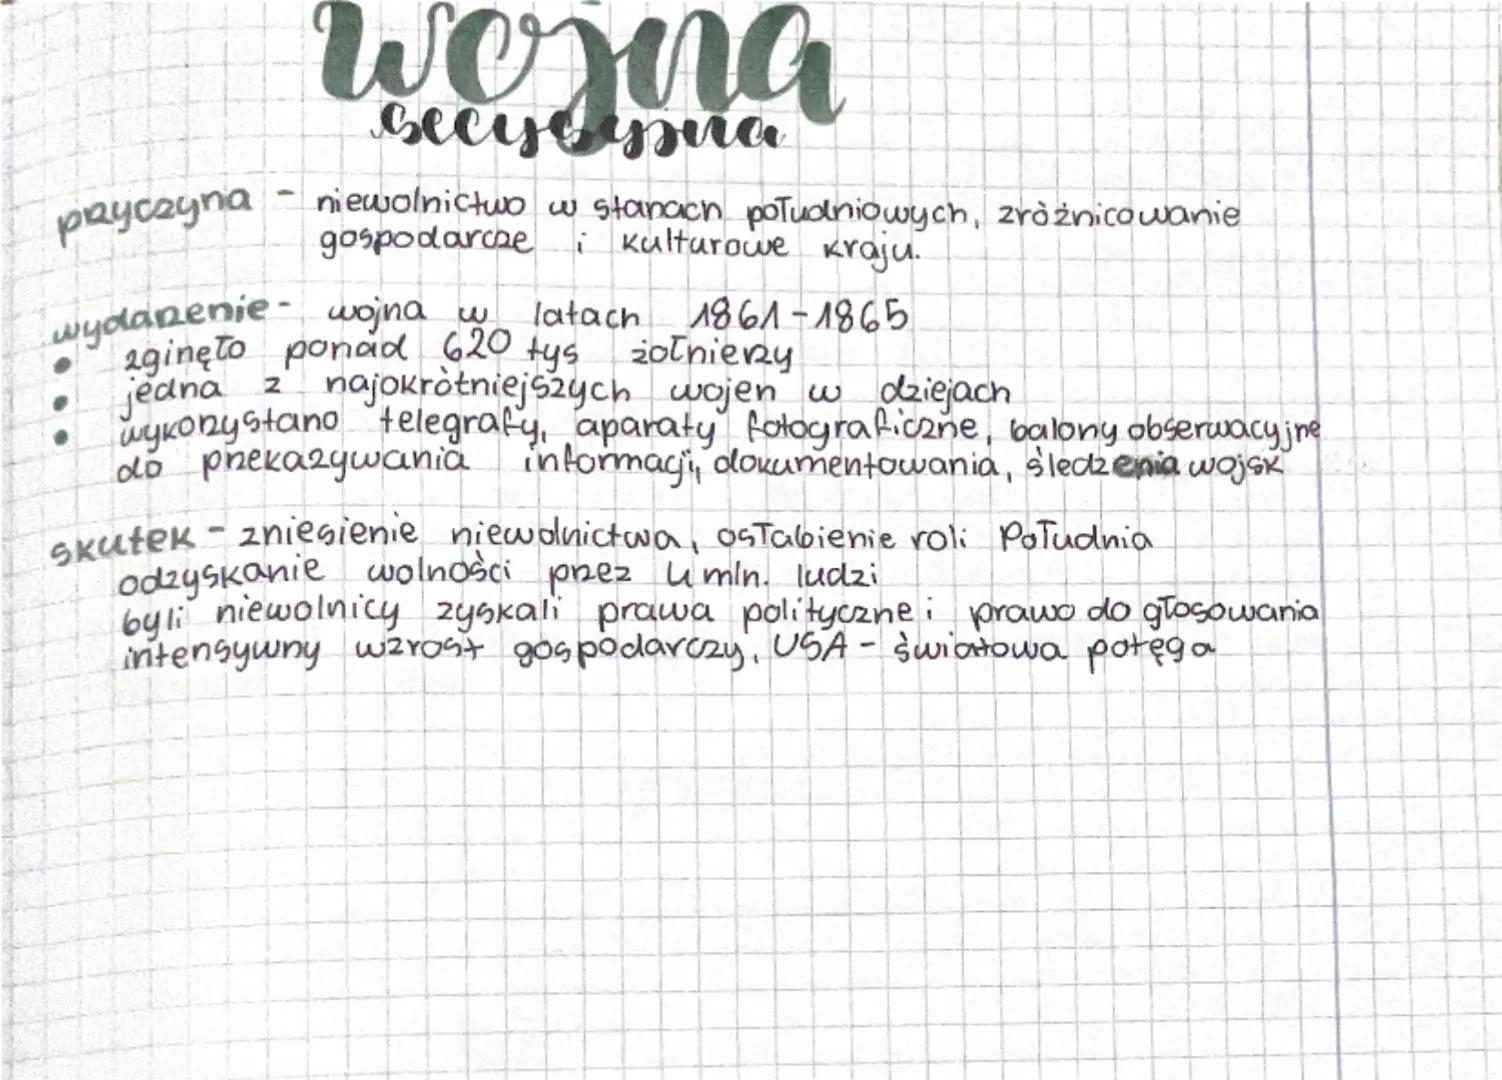 wojna
secysyjna
przyczyna - niewolnictwo w stanach południowych, zróżnicowanie
gospodarcze i kulturowe kraju.
wydarzenie - wojna w latach 1861-1865
• zginęło ponad 620 tys żołnierzy
• jedna z najokrótniejszych wojen w dziejach
• wykorzystano telegrafy, aparaty fotograficzne, balony obserwacyjne
do przekazywania informacji, dokumentowania, śledzenia wojsk
skutek - zniesienie niewolnictwa, osłabienie roli Południa
odzyskanie wolności przez 4 mln. ludzi
byli niewolnicy zyskali prawa polityczne i prawo do głosowania
intensywny wzrost gospodarczy, USA - światowa potęga